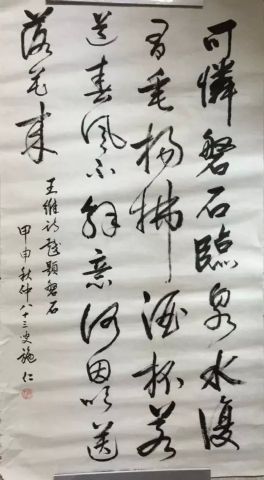 可憐磐石臨泉水復
有垂楊拂酒杯若
道春風不解意何因吹送
落花來
王維詩戲題磐石
甲申秋仲八十三叟施仁